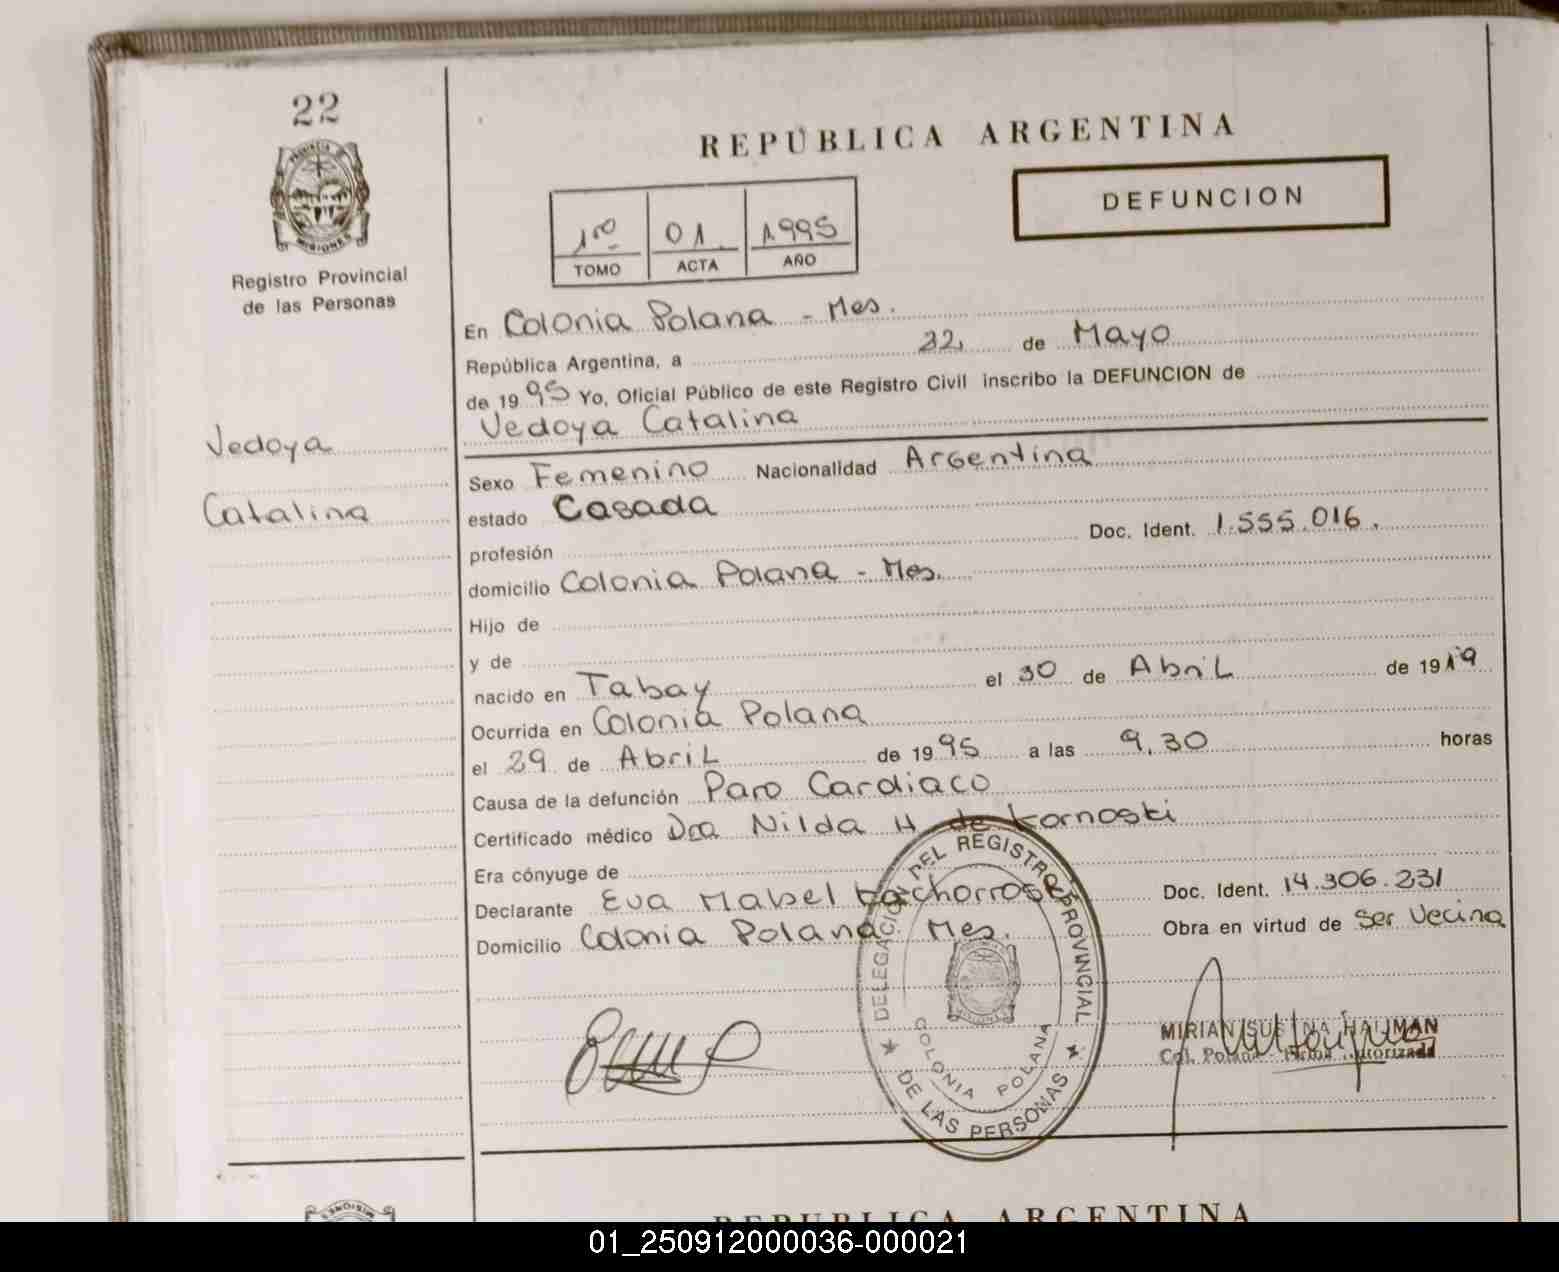 22
PROVINCIA DE MISIONES
Registro Provincial
de las Personas
REPÚBLICA ARGENTINA
DEFUNCION
1ro 01 1995
TOMO ACTA AÑO
En Colonia Polana - Mes.
República Argentina, a 22, de Mayo
de 1995 Yo, Oficial Público de este Registro Civil inscribo la DEFUNCION de
Vedoya Catalina
Vedoya
Catalina
Sexo Femenino Nacionalidad Argentina
estado Casada
profesión Doc. Ident. 1.555.016.
domicilio Colonia Polana - Mes.
Hijo de
y de
nacido en Tabay el 30 de Abril de 1919
Ocurrida en Colonia Polana
el 29 de Abril de 1995 a las 9,30 horas
Causa de la defunción Paro Cardiaco
Certificado médico Dra Nilda H de Kornoski
Era cónyuge de
Declarante Eva Mabel Kachorroski Doc. Ident. 14.306.231
Domicilio Colonia Polana Mes. Obra en virtud de Ser Vecina
DELEGACION DEL REGISTRO PROVINCIAL
DE LAS PERSONAS
COLONIA POLANA
MIRIAN HAUMAN
Col. Polana - Firma Autorizada
MISIONES
REPUBLICA ARGENTINA
01_250912000036-000021